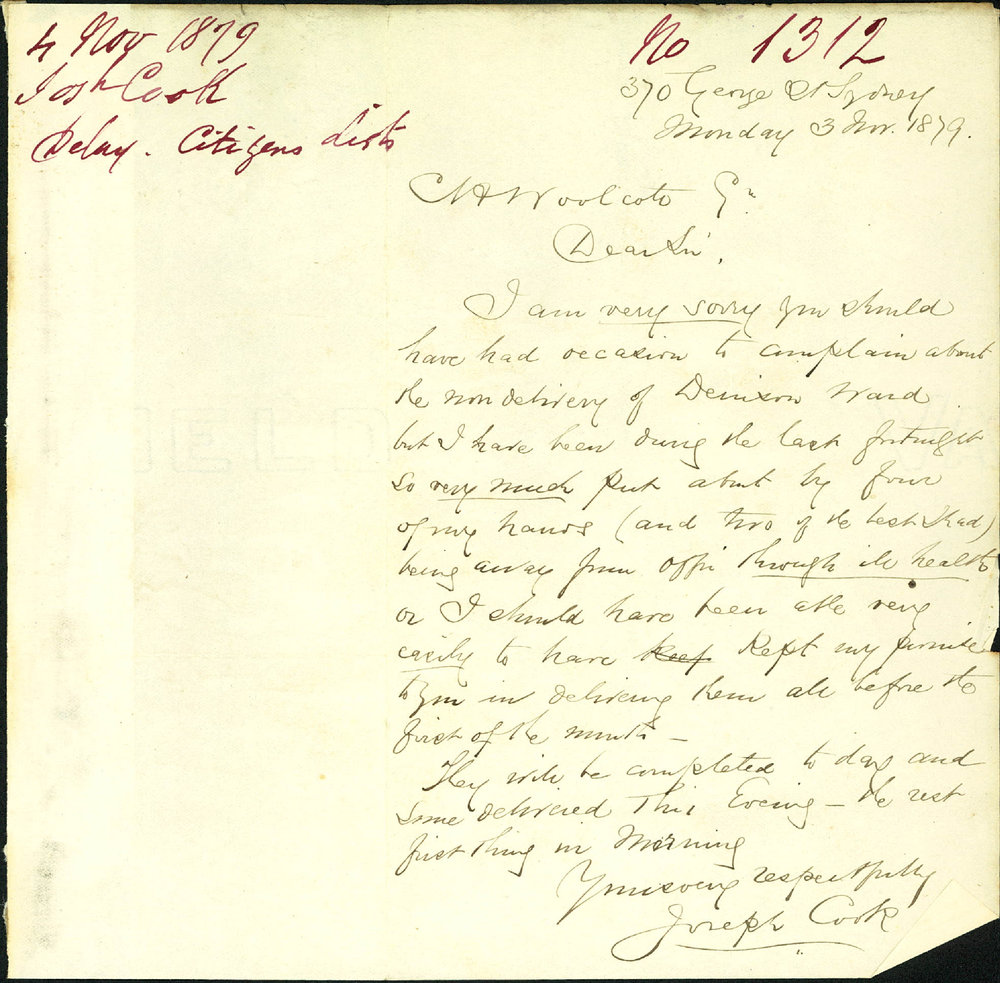 4 Nov 1879
Josh Cook
Delay. Citizens Lists
No 1312
370 George St Sydney
Monday 3 Nov. 1879.
C H Woolcott
Dear Sir,
I am very sorry you should
have had occasion to complain about
the non delivery of Denison Ward
but I have been during the last fortnight
so very much put about by four
of my hands (and two of the best I had)
being away from office through ill health
or I should have been able very
easily to have keep kept my promise
to you in delivering them all before the
first of the month –
They will be completed to day and
some delivered this Evening – the rest
first thing in Morning
Yours very respectfully
Joseph Cook